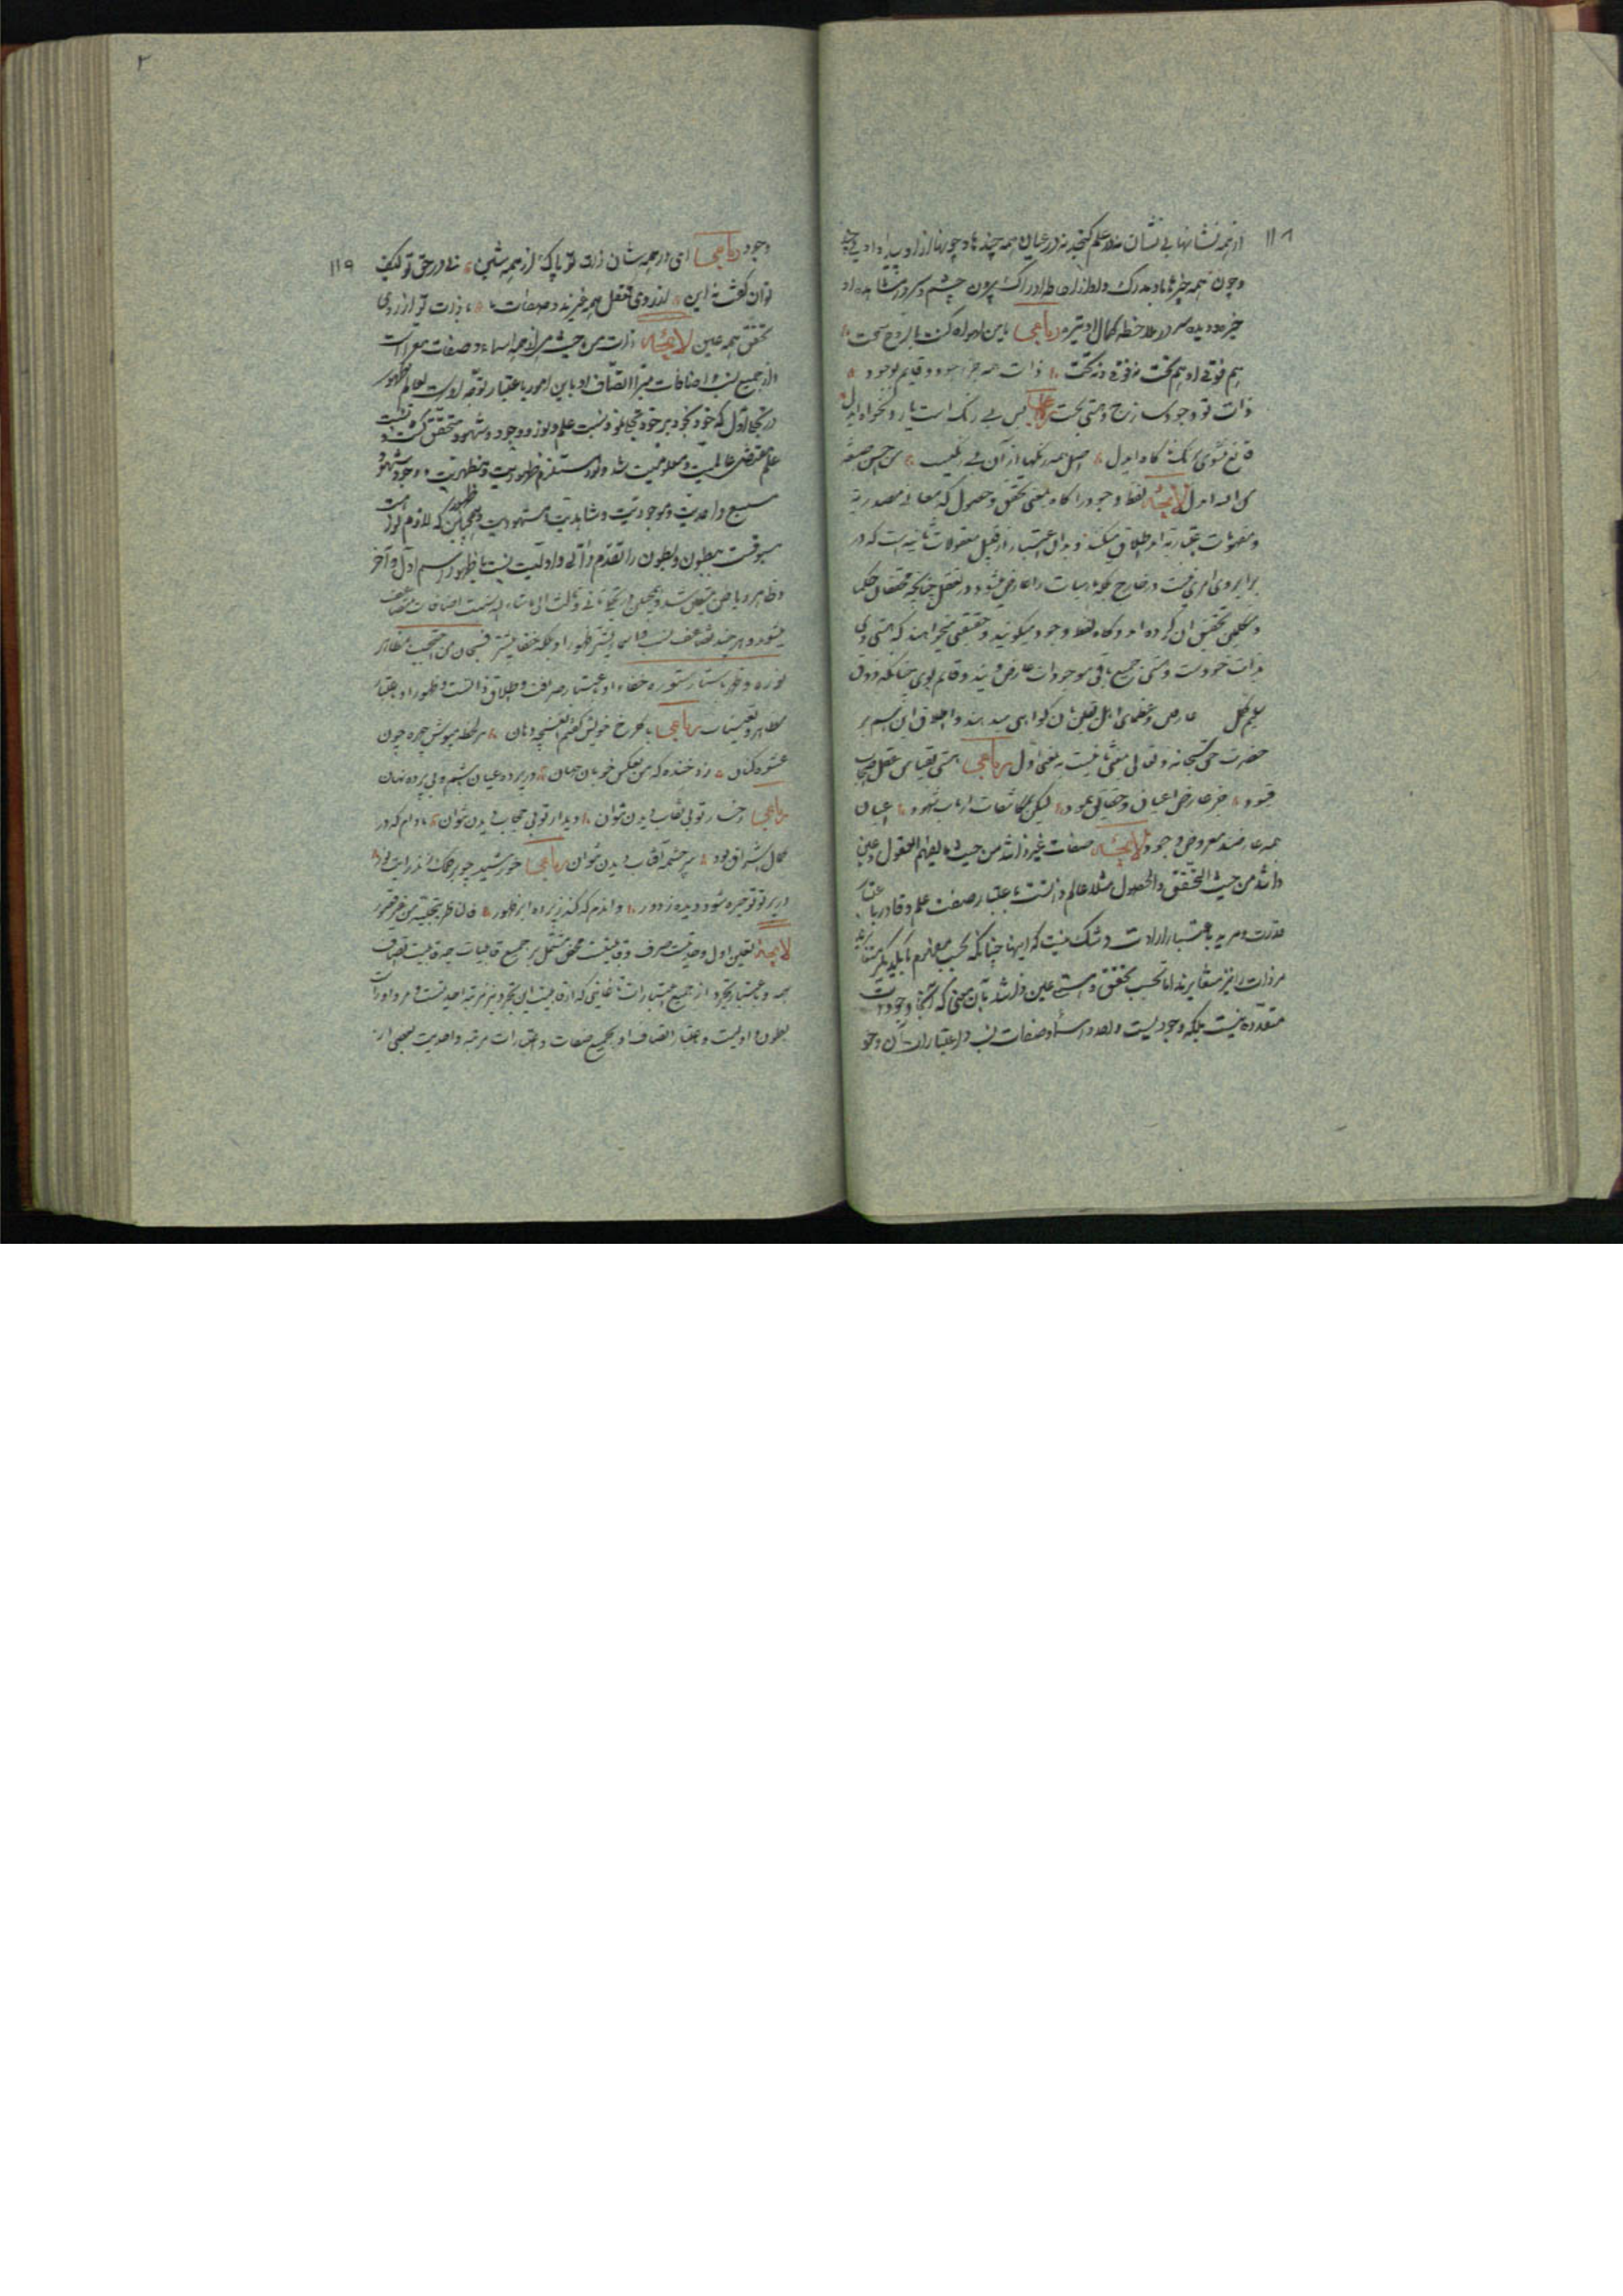 ۱۱۸
از همه نشانها بی نشان نه در علم گنجد نه در عیان همه چند ها و چونها از او پیدا و او بی چند
و چون همه چیزها باو مدرک و او از احاطه ادراک بیرون چشم سر در مشاهده او
خیره و دیده سر در ملاحظه کمال او تیره رباعی
هم فوقی و هم تحت نه فوقی و نه تحت ذات همه جز وجود و قایم بوجود
ذات تو وجود ساذج و هستی بحت رباعی بس بی رنگ است یار دلخواه ای دل
قانع نشوی برنگ ناگاه ای دل اصل همه رنگها از آن بی رنگیست من احسن صبغة
من الله ای دل لایحه لفظ وجود را گاه بمعنی تحقق و حصول که معانی مصدریه
و مفهومات اعتباریه اند اطلاق میکنند و بدان اعتبار از قبیل معقولات ثانیه است که در
برابر وی امری نیست در خارج بلکه ماهیات را عارض میشود در تعقل چنانکه محققان حکما
و متکلمین تحقیق آن کرده اند و گاه لفظ وجود میگویند و حقیقتی میخواهند که هستی وی
بذات خود است و هستی جمیع باقی موجودات عارض ویند و قایم بوی چنانکه ذوق
عارفین و عظمای اهل یقین بآن گواهی میدهند و اطلاق این اسم بر
حضرت حق سبحانه و تعالی بمعنی ثانیست نه بمعنی اول رباعی هستی بقیاس عقل اصحاب
قیود جز عارض اعیان و حقایق ننمود لیکن بمکاشفات ارباب شهود اعیان
همه عارضند و معروض وجود لایحه صفات غیر ذاتند من حیث ما یفهم العقول و عین
ذاتند من حیث التحقق والحصول مثلا عالم ذاتست باعتبار صفت علم و قادر باعتبار
قدرت و مرید باعتبار ارادت و شک نیست که اینها چنانکه بحسب مفهوم با یکدیگر متغایرند
مر ذات را نیز متغایرند اما بحسب تحقق و هستی عین ذاتند بآن معنی که آنجا وجودات
متعدده نیست بلکه وجودیست واحد و اسما و صفات نسب و اعتبارات آن وجود
۲
۱۱۹
وجود رباعی ای در همه شان ذات تو پاک از همه شین نی در حق تو کیف
توان گفت نه این از روی تعقل همه غیرند و صفات با ذات تو از روی
تحقق همه عین لایحه ذات من حیث هی از همه اسماء و صفات معراست
و از جمیع نسب و اضافات مبرا اتصاف او باین امور باعتبار توجه اوست بعالم ظهور
در تجلی اول که خود بخود بر خود تجلی نمود نسبت علم و نور و وجود و شهود متحقق گشت و نسبت
علم مقتضی عالمیت و معلومیت شد و نور مستلزم ظاهریت و مظهریت و وجود و شهود
مستتبع واجدیت و موجودیت و شاهدیت و مشهودیت و همچنین ظهور که لازم نور است
مسبوقست ببطون و بطون را تقدم ذاتی و اولیت نسبت با ظهور اسم اول و آخر
و ظاهر و باطن متعین شد و همچنین در تجلی ثانی و ثالث الی ماشاء الله نسب و اضافات متضاعف
میشود و هر چند تضاعف نسب و اسماء بیشتر ظهور او بلکه خفا بیشتر فسبحان من احتجب بمظاهر
نوره و ظهر باستار ستوره خفاء او باعتبار صرافت و اطلاق ذاتست و ظهور او باعتبار
مظاهر و تعینات رباعی با گلرخ خویش گفتم ای غنچه دهان هر لحظه مپوش چهره چون
عشوه گران زد خنده که من بعکس خوبان جهان در پرده عیان باشم و بی پرده نهان
رباعی رخسار تو بی نقاب دیدن نتوان دیدار تو بی حجاب دیدن نتوان مادام که در
کمال اشراق بود سرچشمه آفتاب دیدن نتوان رباعی خورشید چو بر فلک زند رایت نور
در پرتو او خیره شود دیده ز دور واندم که کند ز پرده ابر ظهور فالناظر یجتلیه من غیر قصور
لایحه تعین اول وحدتیست صرف و قابلیتیست محض مشتمل بر جمیع قابلیات چه قابلیت اتصاف
بهمه و باعتبار تجرد از جمیع اعتبارات تا غایتی که از قابلیت این تجرد نیز مرتبه احدیتست و مر او راست
بطون و اولیت و باعتبار اتصاف او بجمیع صفات و اعتبارات مرتبه واحدیت بعضی از